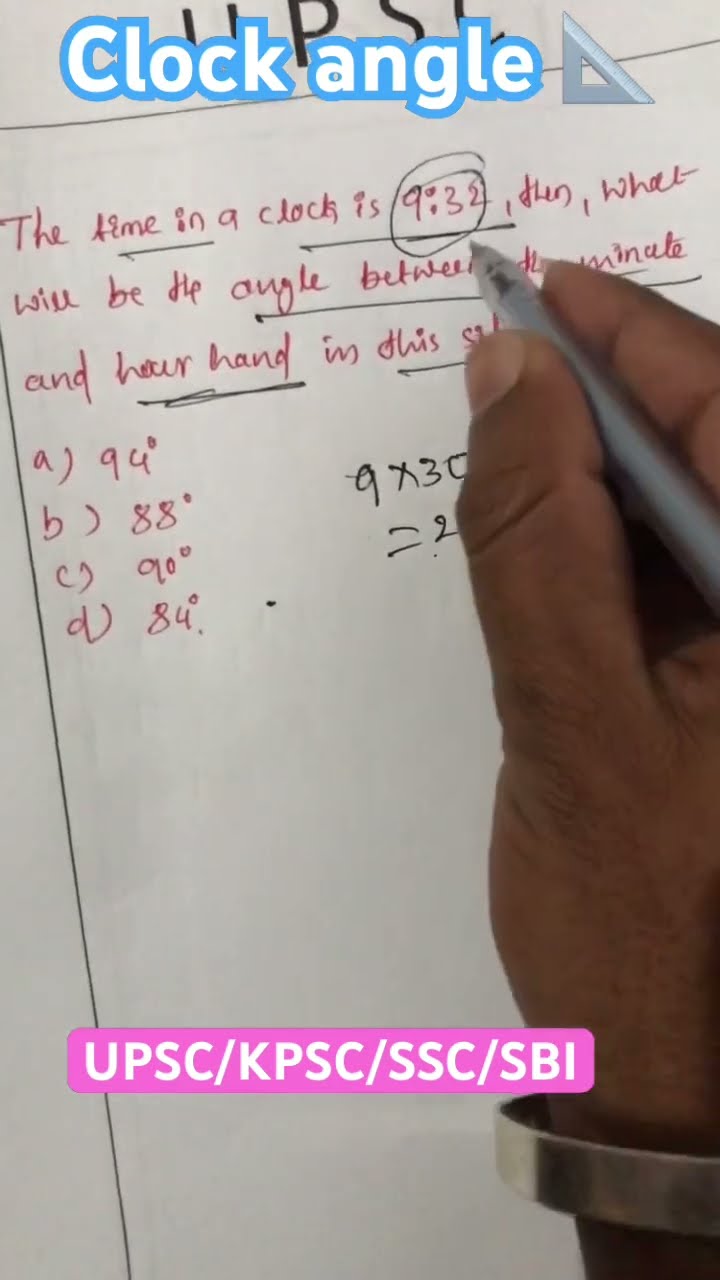 UPSC
Clock angle
The time in a clock is 9:32, then, what
will be the angle between the minute
and hour hand in this
a) 94°
b) 88°
c) 90°
d) 84°.
9×30
= 2
UPSC/KPSC/SSC/SBI